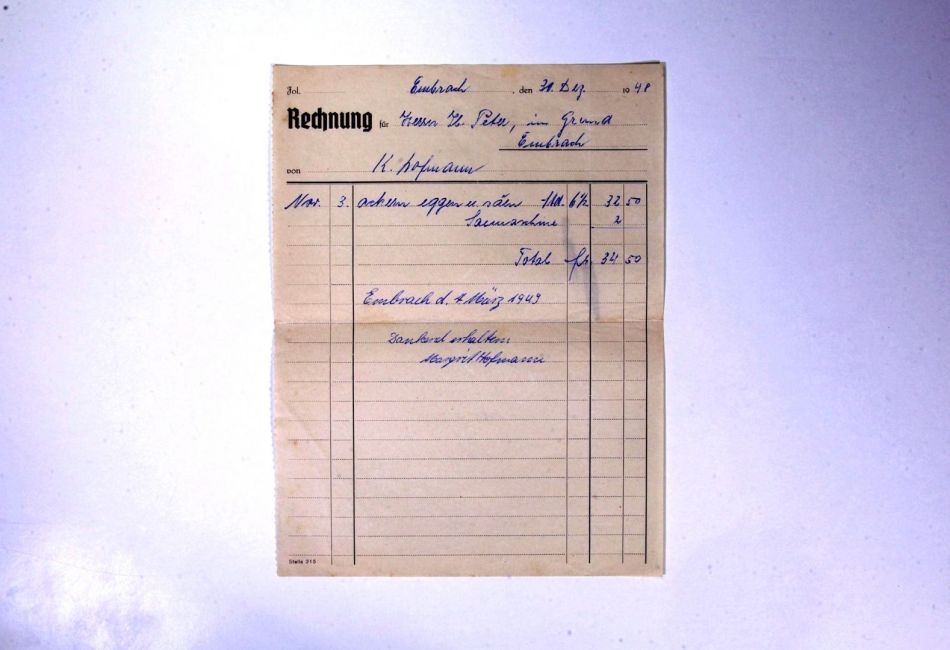 Fol. Embrach, den 30. Dez. 1948
Rechnung für Herrn H. Peter, im Grund
Embrach
von K. Hofmann
Nov. 3. ackern eggen u. säen Std. 6½ 32 50
Saemaschine 2
Total fr. 34 50
Embrach d. März 1949
Dankend erhalten
Margrit Hofmann
Stella 315